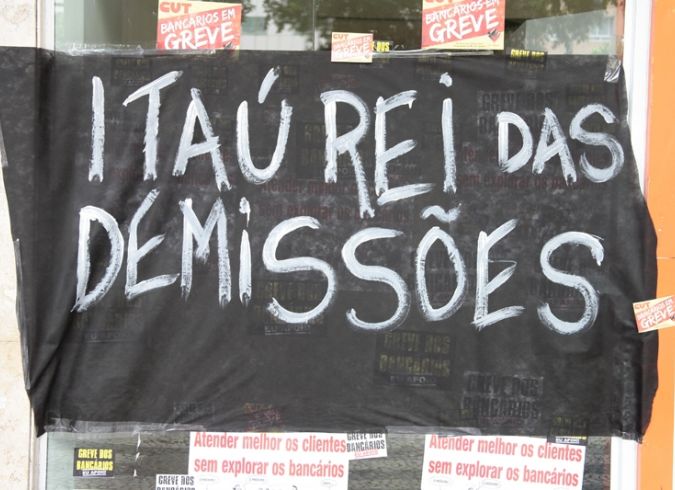 CUT
BANCÁRIOS EM
GREVE
CUT
BANCÁRIOS EM
GREVE
GREVE DOS
ITAÚ REI DAS
DEMISSÕES
CUT
BANCÁRIOS EM
GREVE
GREVE DOS
BANCÁRIOS
EU APOIO
GREVE DOS
BANCÁRIOS
GREVE DOS
BANCÁRIOS
EU APOIO
Atender melhor os clientes
sem explorar os bancários
GREVE DOS
BANCÁRIOS
EU APOIO
Atender melhor os clientes
sem explorar os bancários
GREVE DOS
BANCÁRIOS